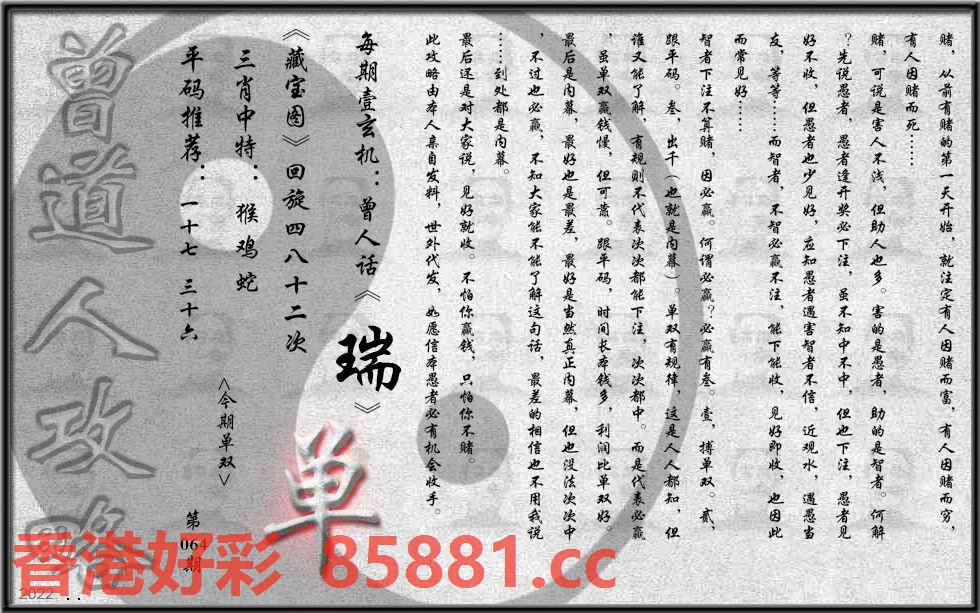 赌，从前有赌的第一天开始，就注定有人因赌而富，有人因赌而穷，
有人因赌而死……
赌，可说是害人不浅，但助人也多。害的是愚者，助的是智者。何解
？先说愚者，愚者逢开奖必下注，虽不知中不中，但也下注，愚者见
好不收，但愚者也少见好，应知愚者遇害智者不信，近观水，遇愚当
友，等等……而智者，不智必赢不注，能下能收，见好即收，也因此
而常见好……
智者下注不算赌，因必赢。何谓必赢？必赢有叁。壹，搏单双。贰，
跟平码。叁，出千（也就是内幕）。单双有规律，这是人人都知，但
谁又能了解，有规则不代表次次都能下注，次次都中。而是代表必赢
，虽单双赢钱慢，但可靠。跟平码，时间长本钱多，利润比单双好。
最后是内幕，最好也是最差，最好是当然真正内幕，但也没法次次中
，不过也必赢，不知大家能不能了解这句话，最差的相信也不用我说
……到处都是内幕。
最后还是对大家说，见好就收。不怕你赢钱，只怕你不赌。
此攻略由本人亲自发料，世外代发，如愿信本愚者必有机会收手。
每期壹玄机：曾人话《瑞》
《藏宝图》回旋四八十二次
三肖中特：猴鸡蛇
平码推荐：一十七 三十六
<今期单双>
单
第
064
期
曾道人攻略
香港好彩 85881.cc
2022